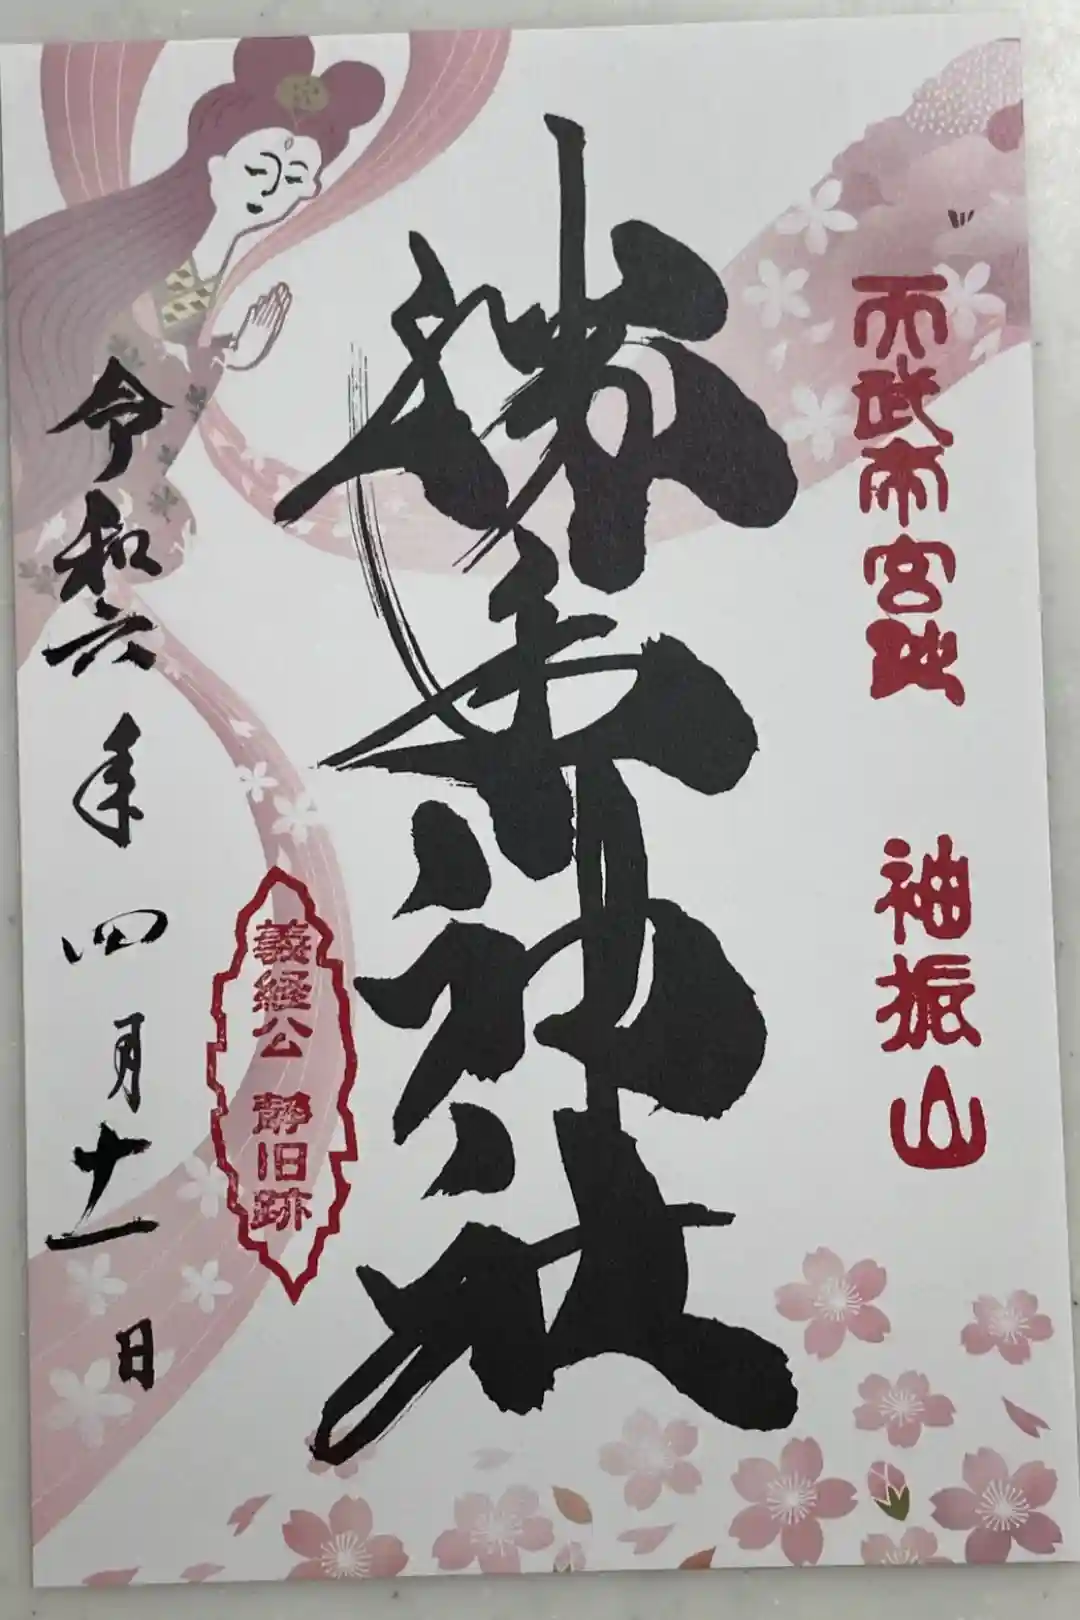 天武帝宮跡 袖振山
勝手神社
義経公 静旧跡
令和六年四月十一日